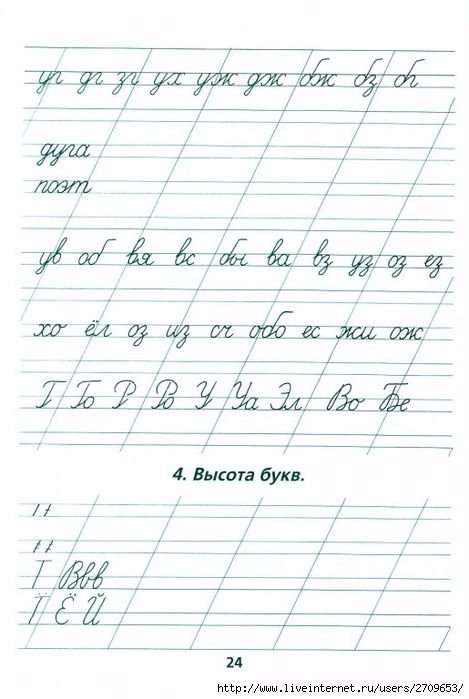 уг дг зг ух уж дж бж бз бг
дуга
поэт
ув об вя вс бы ва вз уз оз ез
хо ёл оз из сч обо ес жи ож
Г Го Р Ро У Уа Эл Во Бе
4. Высота букв.
Г Ввв
Ё Й
24
http://www.liveinternet.ru/users/2709653/